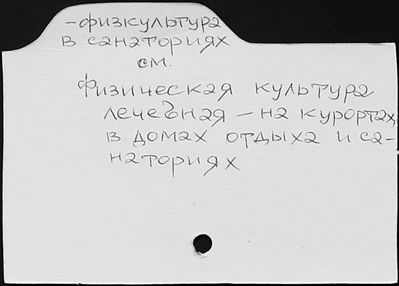 -физкультура
в санаториях
см.
Физическая культура
лечебная - на курортах,
в домах отдыха и са-
наториях